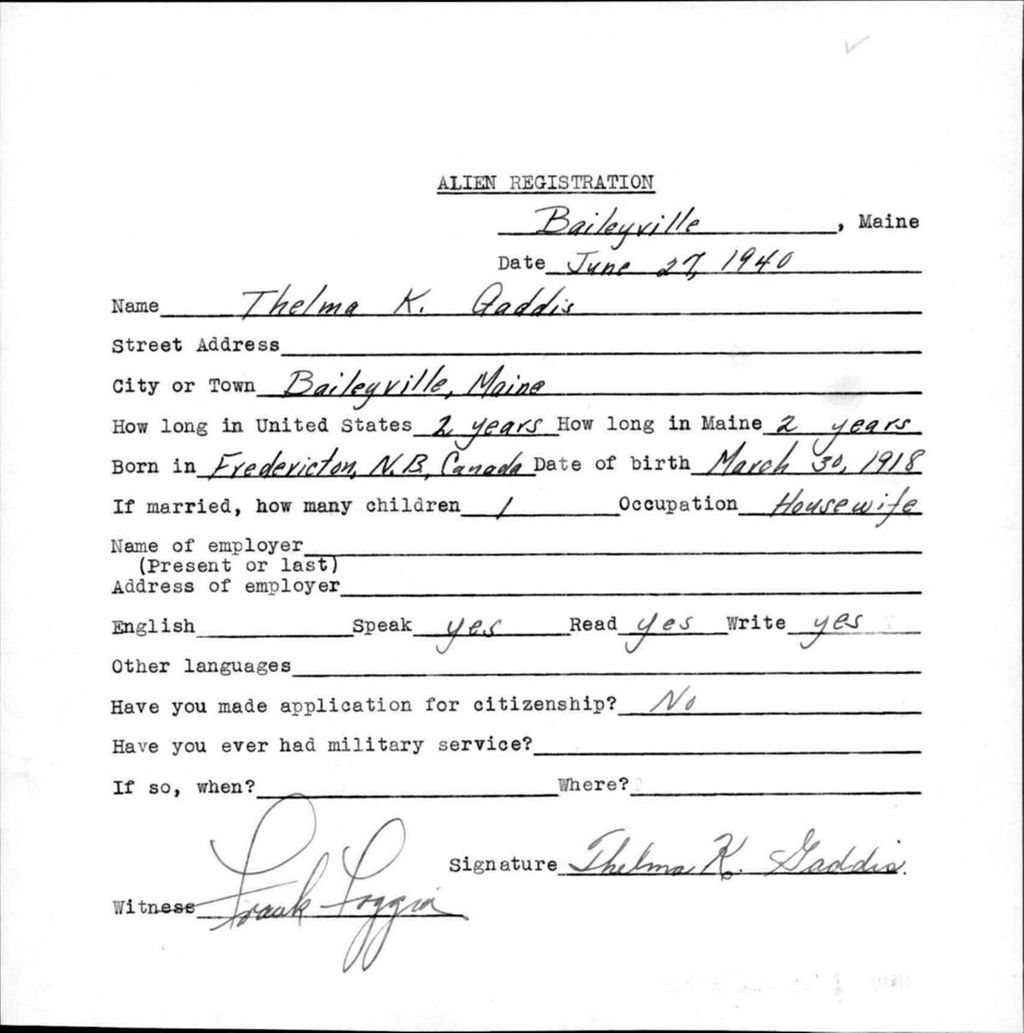 ALIEN REGISTRATION
Baileyville, Maine
Date June 27, 1940
Name Thelma K. Gaddis
Street Address
City or Town Baileyville, Maine
How long in United States 2 years How long in Maine 2 years
Born in Fredericton, N.B, Canada Date of birth March 30, 1918
If married, how many children 1 Occupation Housewife
Name of employer
(Present or last)
Address of employer
English Speak yes Read yes Write yes
Other languages
Have you made application for citizenship? No
Have you ever had military service?
If so, when? Where?
Signature Thelma K. Gaddis.
Witness Frank Foggia